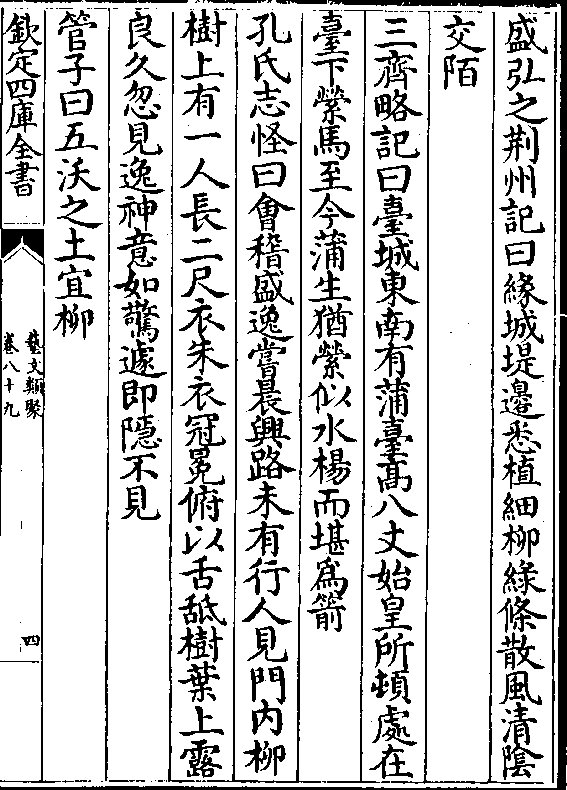 盛弘之荆州記曰緣城堤邊悉植細柳綠條散風清陰
交陌
三齊略記曰臺城東南有蒲臺高八丈始皇所頓處在
臺下縈馬至今蒲生猶縈似水楊而堪為箭
孔氏志怪曰會稽盛逸嘗晨興路未有行人見門内柳
樹上有一人長二尺衣朱衣冠冕俯以舌舐樹葉上露
良久忽見逸神意如驚遽即隱不見
管子曰五沃之土宜柳
欽定四庫全書
藝文類聚
卷八十九
四